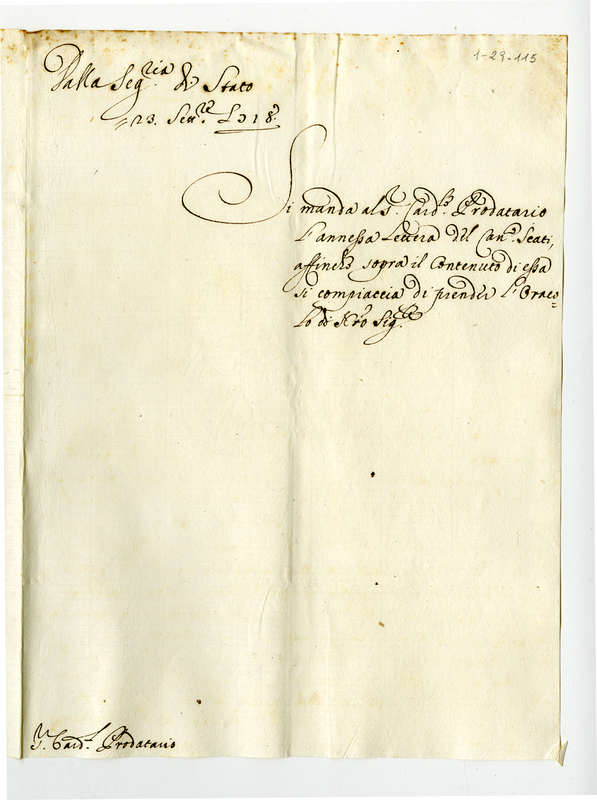 1-29-115
Dalla Seg.ria di Stato
23. Sett.re 1718.
Si manda al S.r Card.le Prodatario
l'annessa Lettera del Can.co Scati,
affinchè sopra il Contenuto di essa
si compiaccia di prender l'Oraco=
lo di N.ro Sig.re
S.r Card.le Prodatario